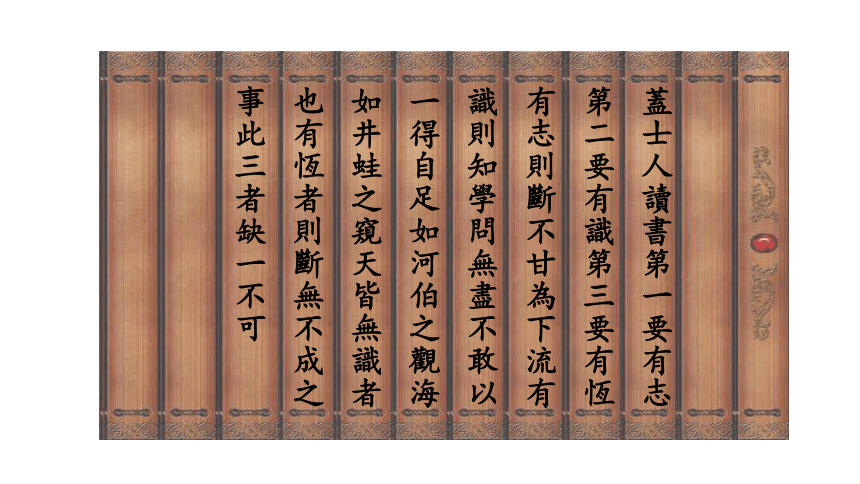 蓋士人讀書第一要有志
第二要有識第三要有恆
有志則斷不甘為下流有
識則知學問無盡不敢以
一得自足如河伯之觀海
如井蛙之窺天皆無識者
也有恆者則斷無不成之
事此三者缺一不可